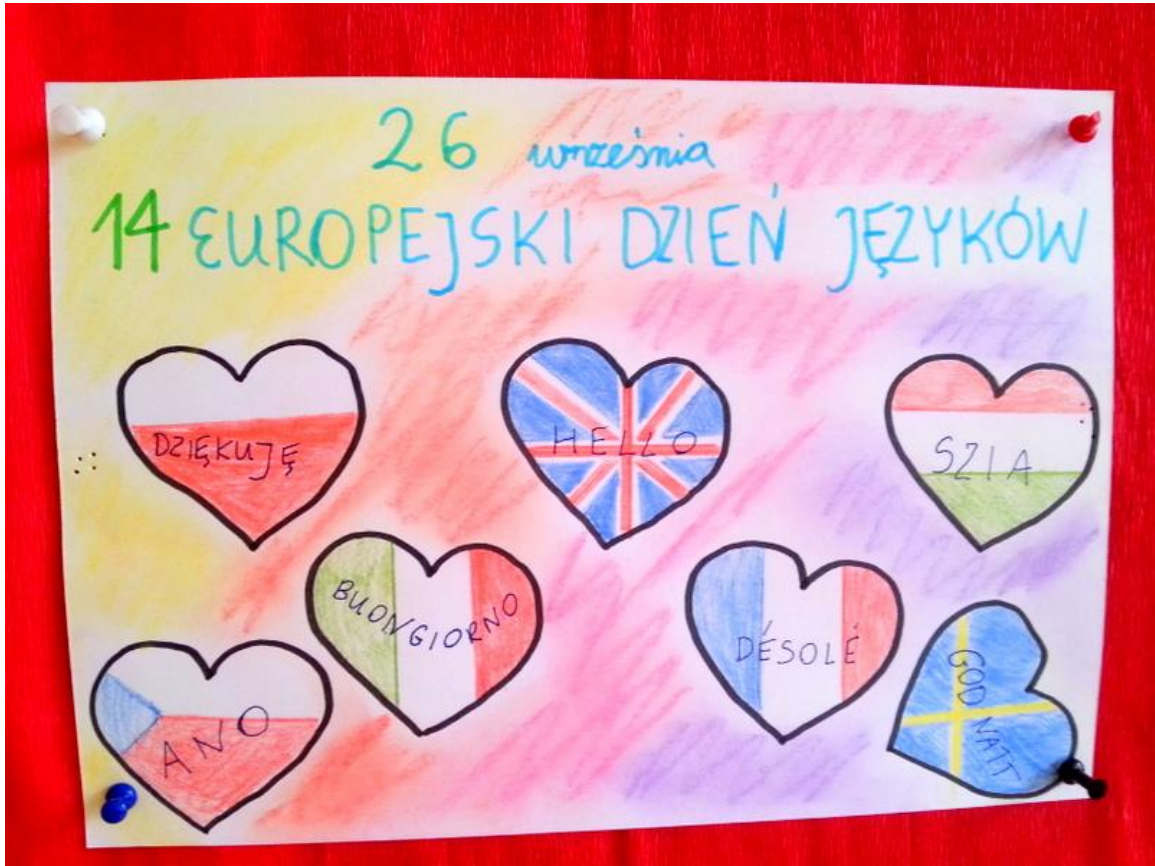 26 września
14 EUROPEJSKI DZIEŃ JĘZYKÓW
DZIĘKUJĘ
HELLO
SZIA
BUONGIORNO
DÉSOLÉ
ANO
GOD NATT